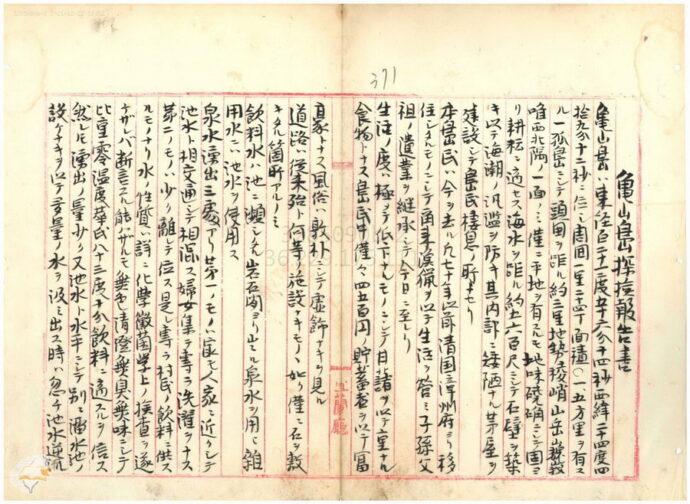 371
亀山島探撿報告書
亀山島ハ東径百二十一度五十六分十四秒西緯二十四度四
拾九分十二秒ニ位シ周囲一里三十四丁面積〇一五方里ヲ有ス
ル一孤島ニシテ頭囲ヲ距ル約三里地勢峻峭山岳
唯西北隅ノ一面ニ僅ニ平地ヲ有スルモ地味磽确ニシテ固ヨ
リ耕耘ニ適セス海水ヲ距ル約六百尺ニシテ石壁ヲ築
キ以テ海潮ノ汎濫ヲ防キ其内部ニ矮陋ナル茅屋ヲ
建設シテ島民棲息ノ所トセリ
本島民ハ今ヲ去ル九七十年以前清国漳州府ヨリ移
住シタルモノニシテ爾来漁猟ヲ以テ生活ヲ営ミ子孫父
祖ノ遺業ヲ継承シテ今日ニ至レリ
生活ノ度ハ極メテ低下ナルモノニシテ甘諸ヲ以テ重ナル
食物トナス島民中僅々四五百円ノ貯蓄者ヲ以テ富
豪トナス風俗ハ敦朴ニシテ虚飾ナキヲ見ル
道路ハ従来殆ト何等ノ施設ナキモノヽ如ク僅ニ石ヲ敷
キタル箇所アルノミ
飲料水ハ池ニ瀕シタル岩石間ヨリ出ル泉水ヲ用ヒ雑
用水ニハ池水ヲ使用ス
泉水湧出三處アリ第一ノモノハ家屯人家ニ近クシテ
池水ト相交通シテ相混ス婦女集テ専ラ洗濯ヲナス
第二ノモノハ少シ離レテ位ス是レ専ラ村民ノ飲料ニ供ス
ルモノナリ水ノ性質ハ詳ニ化学黴菌学上ノ撿査ヲ遂
ケザレバ断言スル能ハザルモ無色清澄無臭無味ニシテ
比重零温度華氏八十三度十分飲料ニ適スルヲ信ス
然レトモ湧出ノ量少ク又池水ト水平ニシテ別ニ溜水池ノ
設ケナキヲ以テ多量ノ水ヲ汲ミ出ス時ハ忽チ池水逆流
宜蘭廳